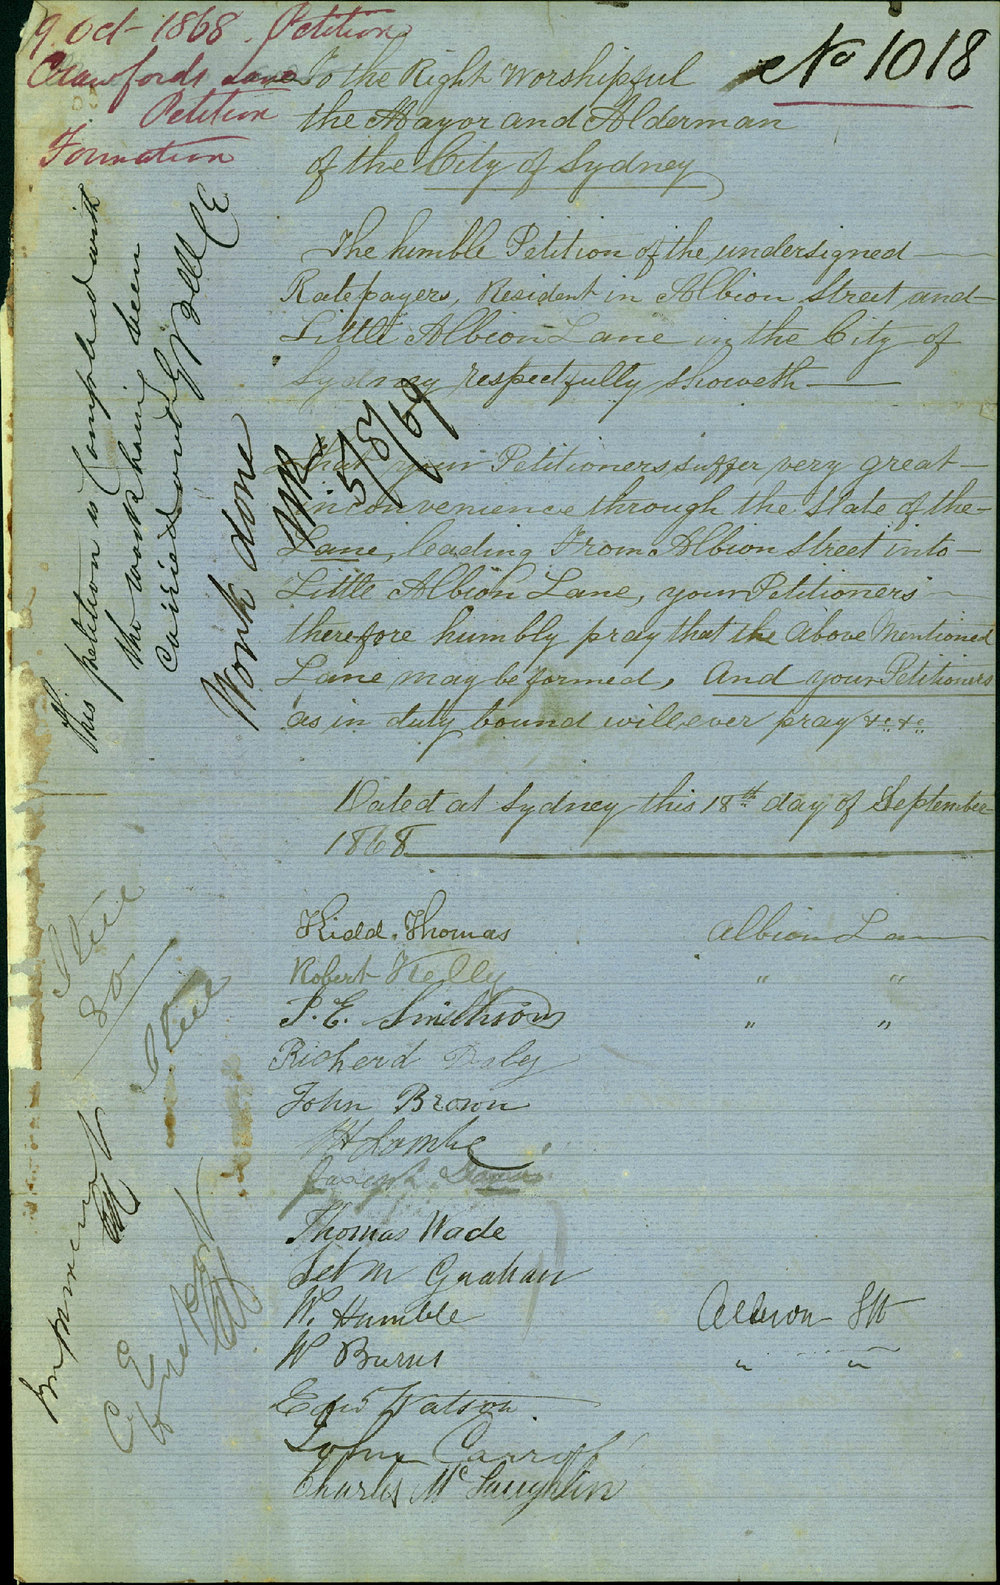 9 Oct 1868. Petition
Crawfords Lane
Petition
Formation
No 1018
To the Right Worshipful
the Mayor and Alderman
of the City of Sydney
The humble Petition of the undersigned
Ratepayers, Resident in Albion Street and
Little Albion Lane in the City of
Sydney respectfully showeth
That your Petitioners suffer very great
inconvenience through the State of the
Lane, leading From Albion Street into
Little Albion Lane, your Petitioners
therefore humbly pray that the above Mentioned
Lane may be formed, And your Petitioners
as in duty bound will ever pray &c &c
Dated at Sydney this 18th day of September
1868
This petition is Complied with
the work having been
Carried out G Bell CE
Work done
5/8/69
Kidd. Thomas Albion Lane
Robert Kelly " "
P. E. Smithson " "
Richerd Daley
John Brown
Joseph Davis
Thomas Wade
W. Humble Albion Stt
W Burns " "
Edwd Watson
John
Charles McLaughlin
80
CE